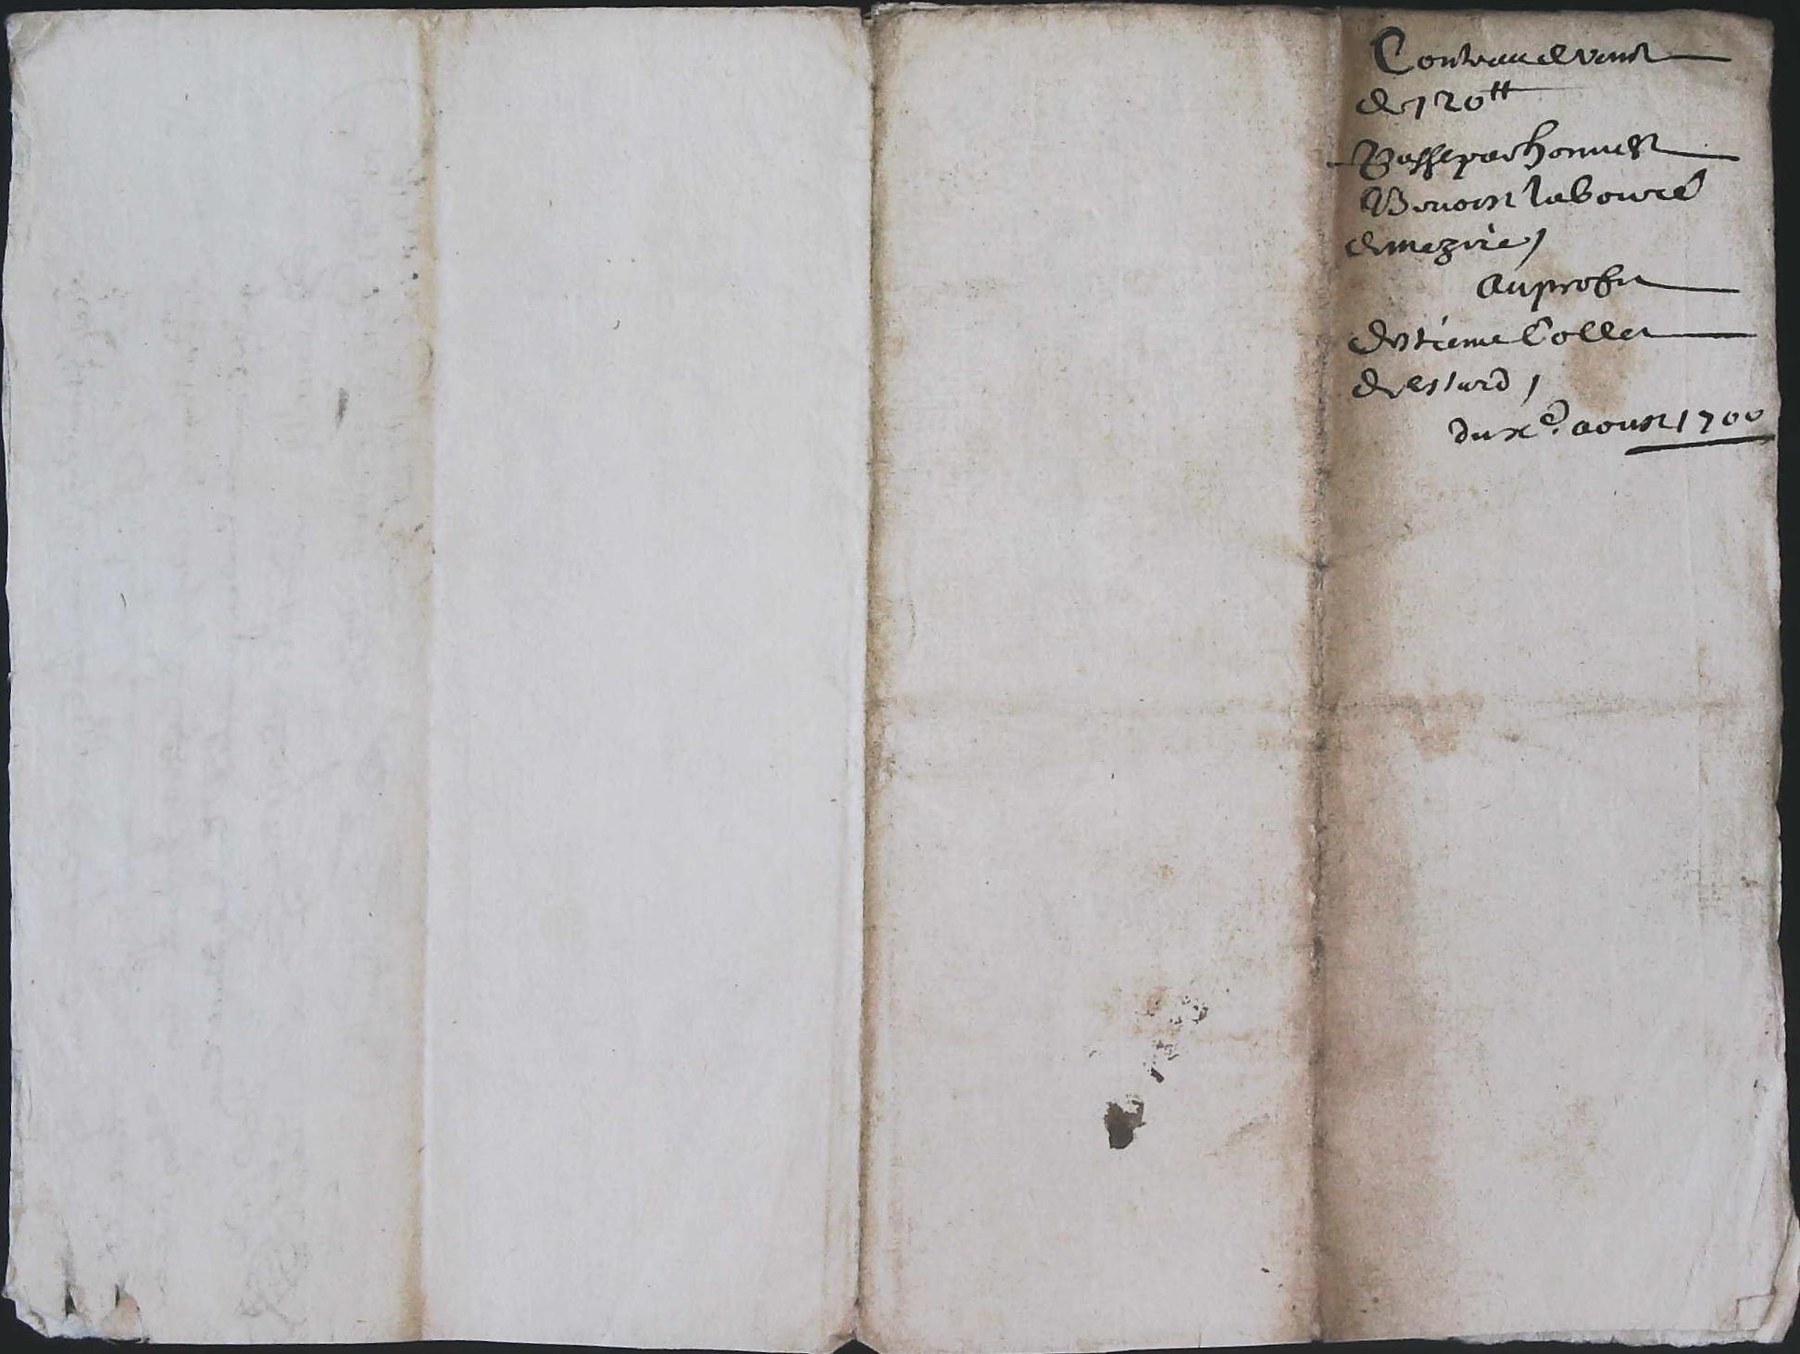 Contrau de vent
de 120 tt
Passe par honneste
Benoist labouré
de mezire /
au profit
destienne Collet
de estard /
du xe. aoust 1700